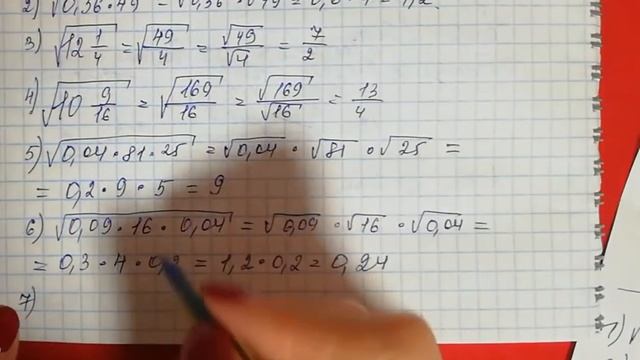 2) √0,36·49 = √0,36 · √49 = 0,6 · 7 =
3) √12 1/4 = √49/4 = √49/√4 = 7/2
4) √10 9/16 = √169/16 = √169/√16 = 13/4
5) √0,04·81·25 = √0,04 · √81 · √25 =
= 0,2 · 9 · 5 = 9
6) √0,09·16·0,04 = √0,09 · √16 · √0,04 =
= 0,3 · 4 · 0,2 = 1,2 · 0,2 = 0,24
7)